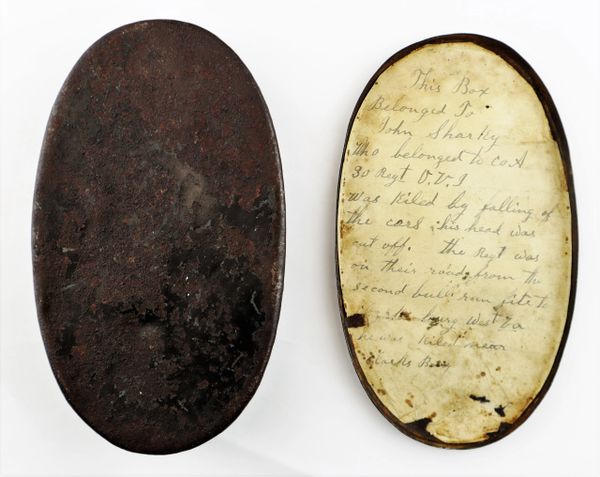 This Box
Belonged To
John Sharky
Who belonged to Co A
30 Regt O.V.I
was Kiled by falling of
the cars, his head was
cut off. The Regt was
on their road from the
second bull run fite to
burg West Va
he was Kiled near